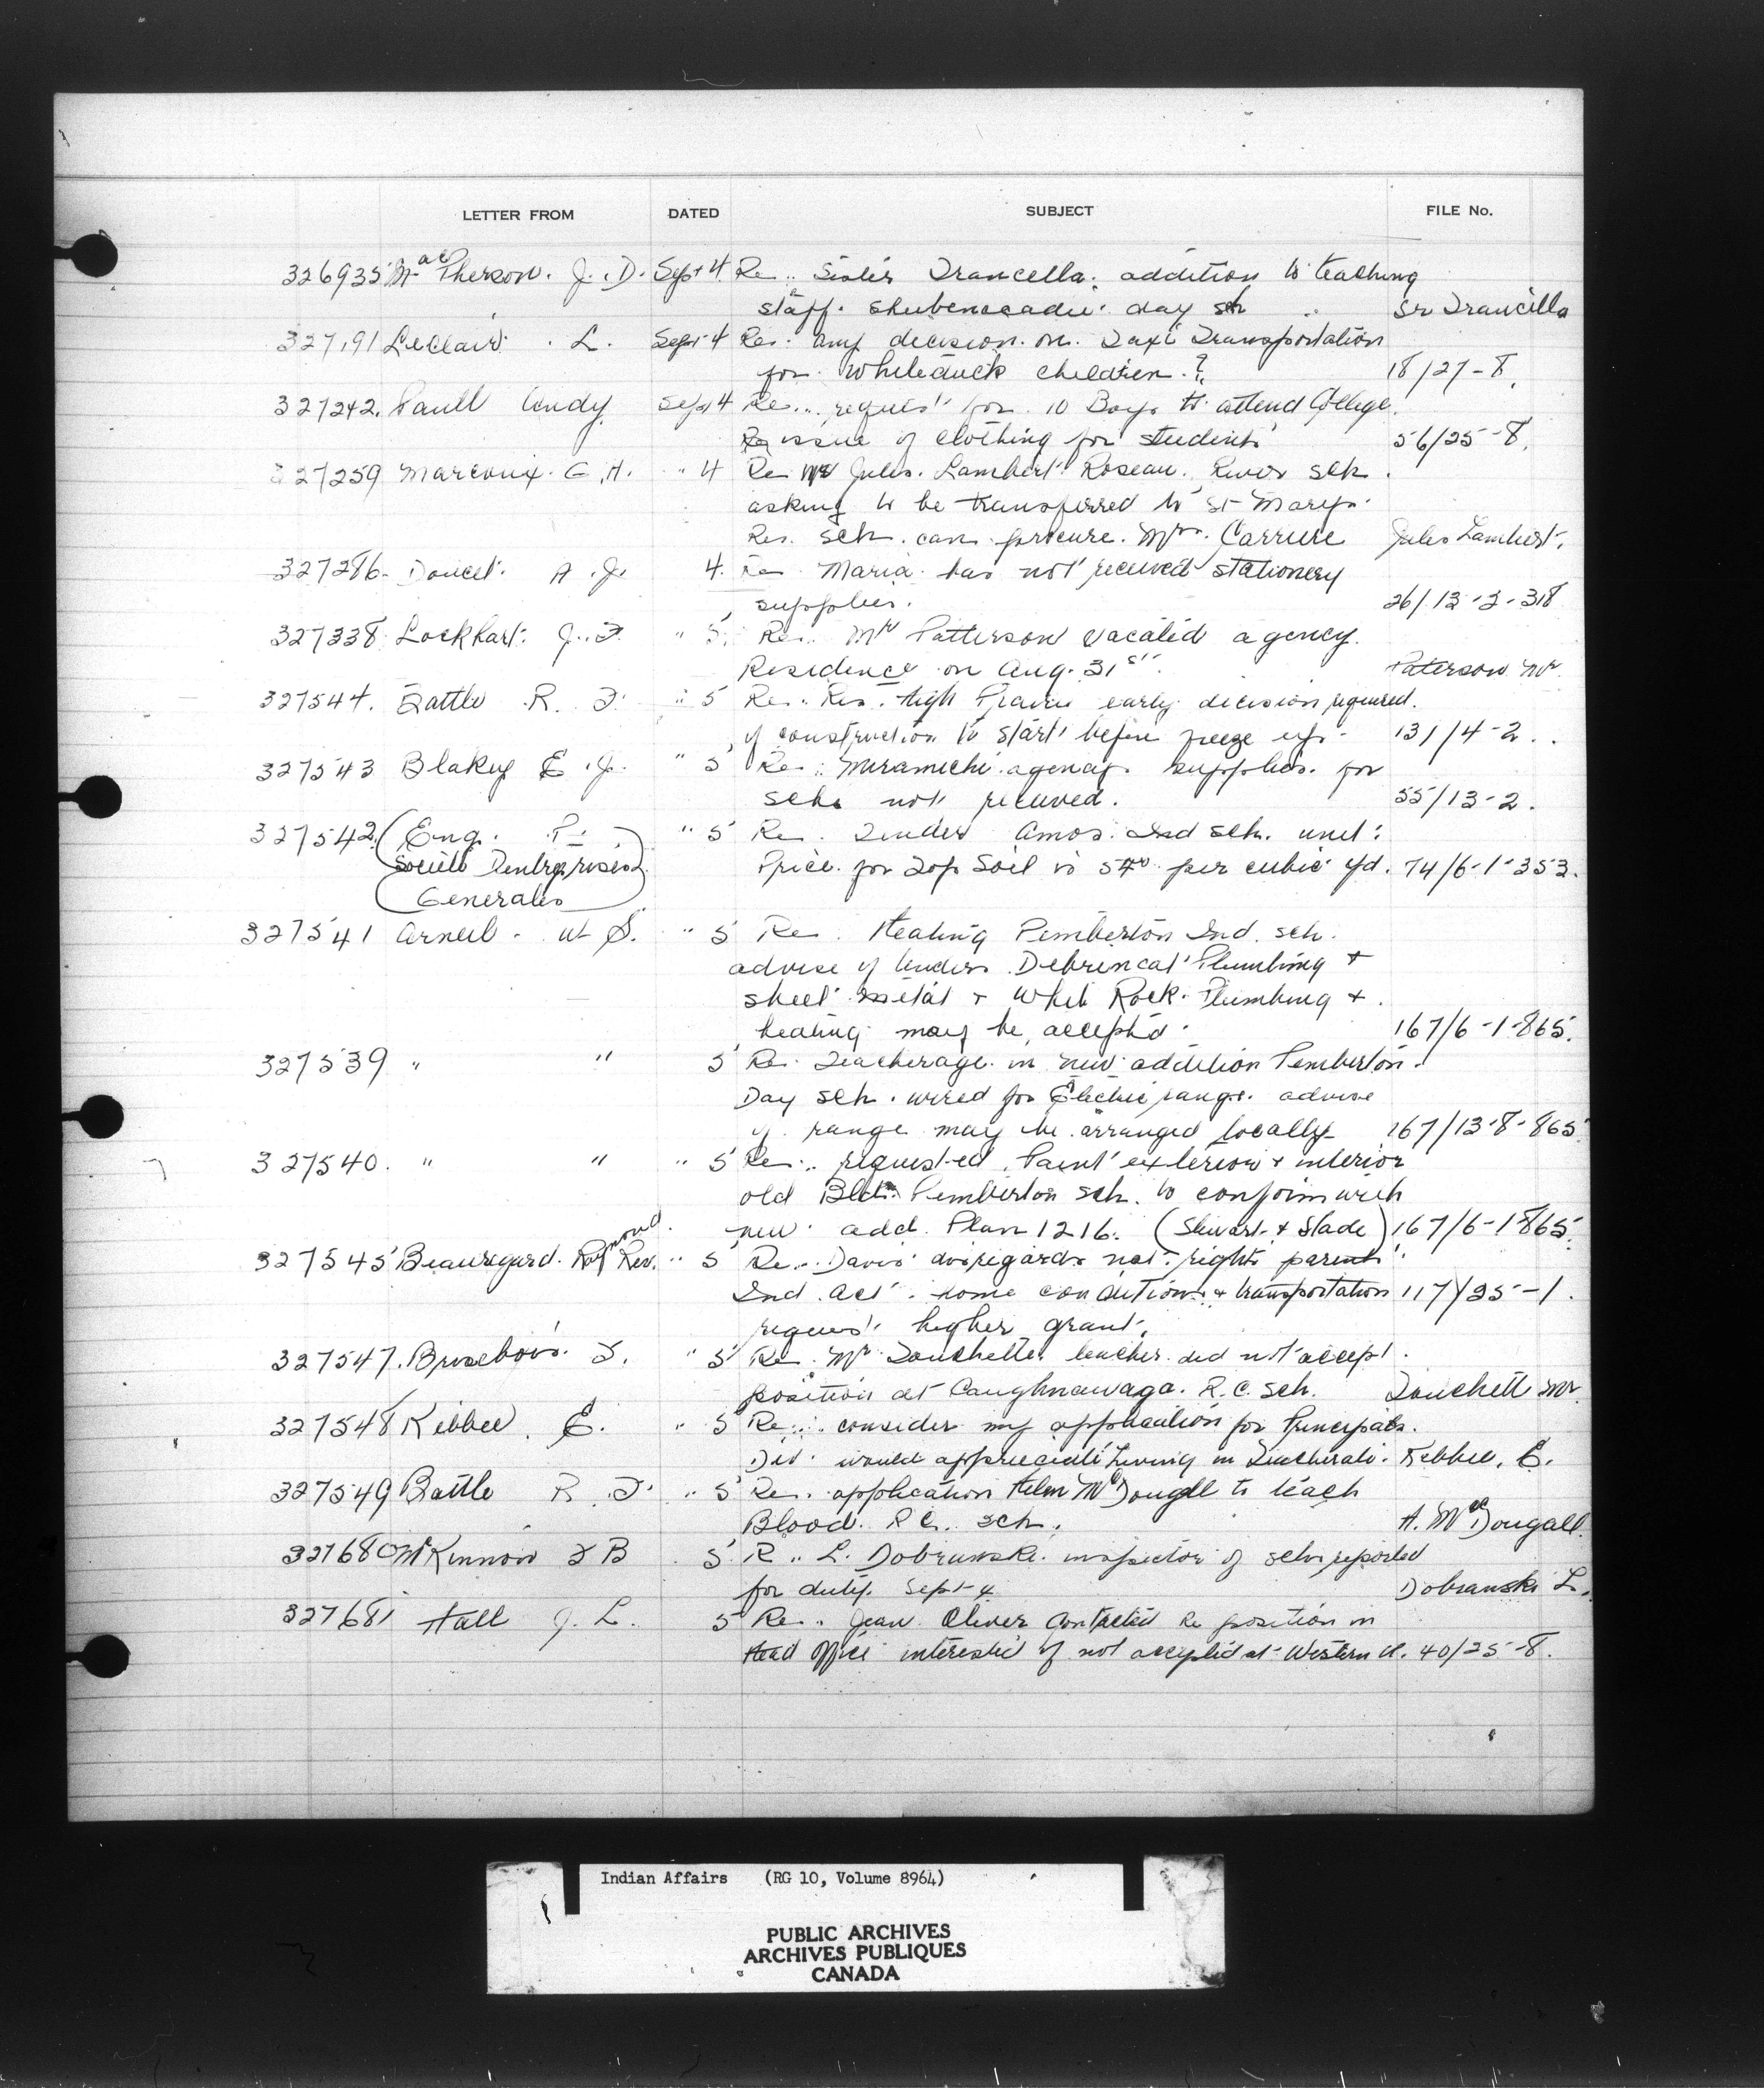 LETTER FROM DATED SUBJECT FILE No.
326935 MacPherson. J. D. Sept 4 Re.. Sister Francella. addition to teaching
staff. Shubenacadie day sch Sr Francilla
327191 Leclair. L. Sept 4 Re. any decision on. Taxi Transportation
for. Whiteduck children.? 18/27-8.
327242. Paull Andy Sept 4 Re... request for 10 Boys to attend College.
Re issue of clothing for students 56/25-8.
327259 Marcoux. G. A. " 4 Re Mr Jules. Lambert. Roseau. River sch.
asking to be transferred to St Marys.
Res. sch. can procure. Mrs. Carriere Jules Lambert.
327286. Doucet. A. J. 4. Re Maria has not received stationery
supplies. 26/13-2-318
327338 Lockhart. J. F. " 5. Re.. Mr Patterson vacated agency.
Residence on Aug. 31st. Paterson Mr
327544. Battle R. F. " 5 Re.. Res. High Prairie early decision required.
if construction to start before freeze up. 131/4-2..
327543 Blakey E. J. " 5 Re.. Miramichi agency. supplies. for
schs not received. 55/13-2.
327542 (Eng. P. " 5 Re. Tender Amos. Ind sch. unit.
Société D'entreprises Price for Top Soil is per cubic yd. 74/6-1-353.
Generales)
327541 Arneil. W S. " 5 Re. Heating Pemberton Ind. sch.
advise if tenders Plumbing +
sheet metal + White Rock. Plumbing +
heating may be accepted. 167/6-1-865.
327539 " " 5 Re. Teacherage in new addition Pemberton.
Day sch. wired for Electric range. advise
if range may be arranged locally 167/13-8-865
327540. " " " 5 Re.. requested Paint exterior + interior
old Bldg. Pemberton sch. to conform with
new add. Plan 1216. (Stewart + Slade) 167/6-1-865.
327545 Beauregard. Raymond Rev. " 5 Re.. Davis disregards nat. rights parents
Ind. Act. home conditions + transportation 117/25-1.
request higher grant.
327547. Brisebois. F. " 5 Re. Mr Touchette teacher did not accept.
position at Caughnawaga. R.C. sch. Touchett Mr.
327548 Kibbee. E. " 5 Re... consider my application for Principals.
would appreciate living in Kebbee, E.
327549 Battle R. F. " 5 Re. application Helen McDougall to teach
Blood. R C. sch. H. McDougall.
327680 McKinnon F B 5 R.. L. Dobranski. inspector of schs reported
for duty. Sept 4 Dobranski L.
327681 Hall J. L. 5 Re.. Jean Oliver contacted re position in
Head Office interested if not accepted at Western U. 40/25-8.
Indian Affairs (RG 10, Volume 8964)
PUBLIC ARCHIVES
ARCHIVES PUBLIQUES
CANADA